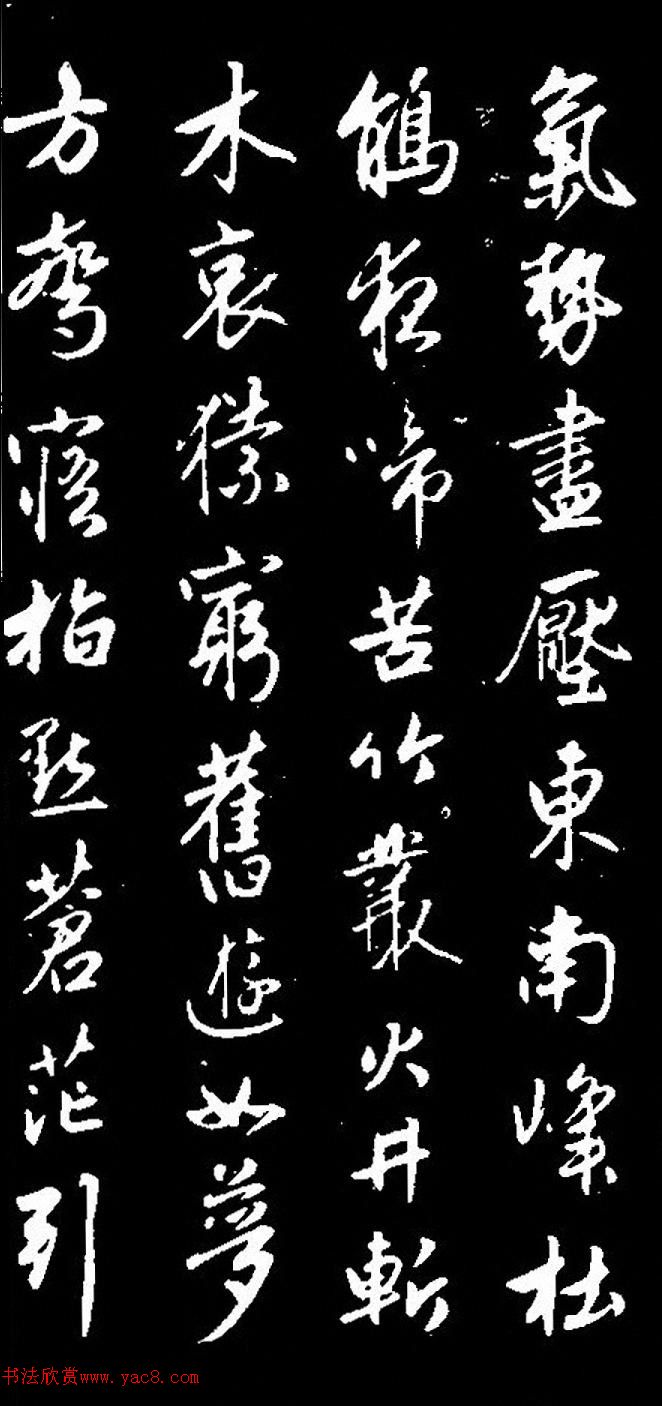 氣勢盡壓東南峰杜
鵑夜啼苦竹叢火井斬
木哀猿窮舊遊如夢
方驚寤指點蒼茫引
书法欣赏www.yac8.com